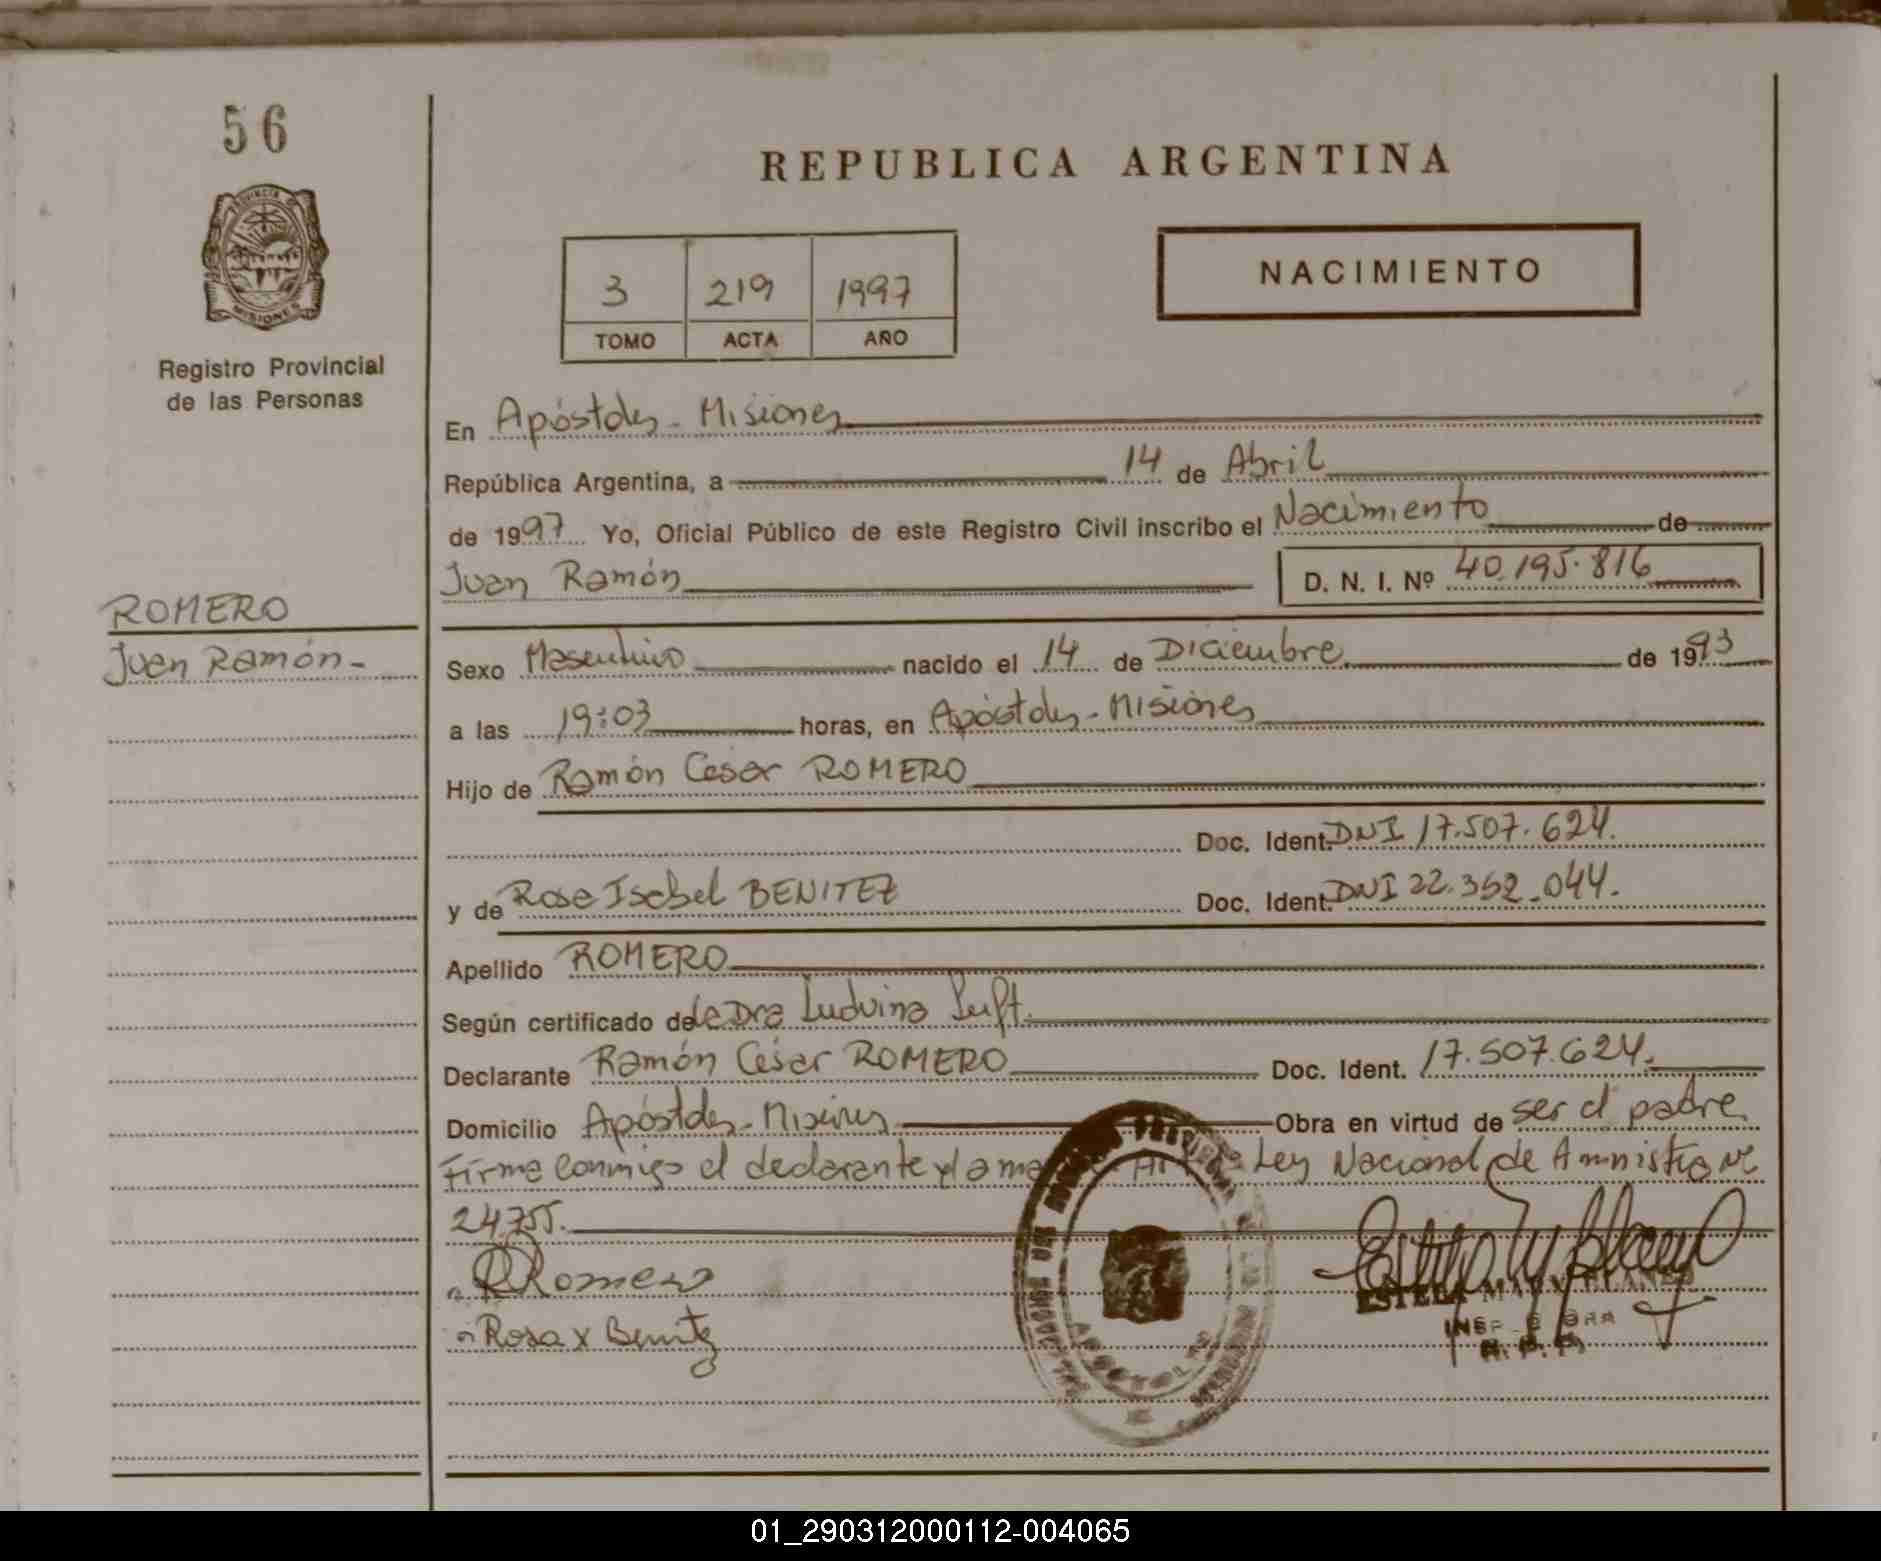 56
PROVINCIA DE
MISIONES
Registro Provincial
de las Personas
ROMERO
Juan Ramón-
REPUBLICA ARGENTINA
3 219 1997
TOMO ACTA AÑO
NACIMIENTO
En Apóstoles - Misiones
República Argentina, a 14 de Abril
de 1997 Yo, Oficial Público de este Registro Civil inscribo el Nacimiento de
Juan Ramón D. N. I. Nº 40.195.816
Sexo Masculino nacido el 14 de Diciembre de 1993
a las 19:03 horas, en Apóstoles - Misiones
Hijo de Ramón César ROMERO
Doc. Ident. DNI 17.507.624.
y de Rosa Isabel BENITEZ Doc. Ident. DNI 22.352.044.
Apellido ROMERO
Según certificado de la Dra Luduina
Declarante Ramón César ROMERO Doc. Ident. 17.507.624.
Domicilio Apóstoles - Misiones Obra en virtud de ser el padre
Firma conmigo el declarante y la Ley Nacional de Amnistía Nº
24.755.
Romero
Rosa x Benitez
APOSTOLES
ESTELA MARY BLANCO
R. P. P.
01_290312000112-004065